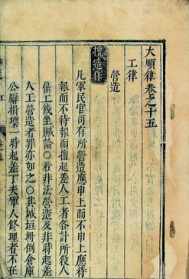 大順律卷之十五
工律
營造
擅造作
凡軍民官司有所營造應申上而不申上應待
報而不待報而擅起差人工者各計所役人
僱工錢坐贓論○若非法營造及非時起差
人工營造者罪亦如之○其城垣坍倒倉庫
公廨損壞一時起差丁夫軍人修理者不在